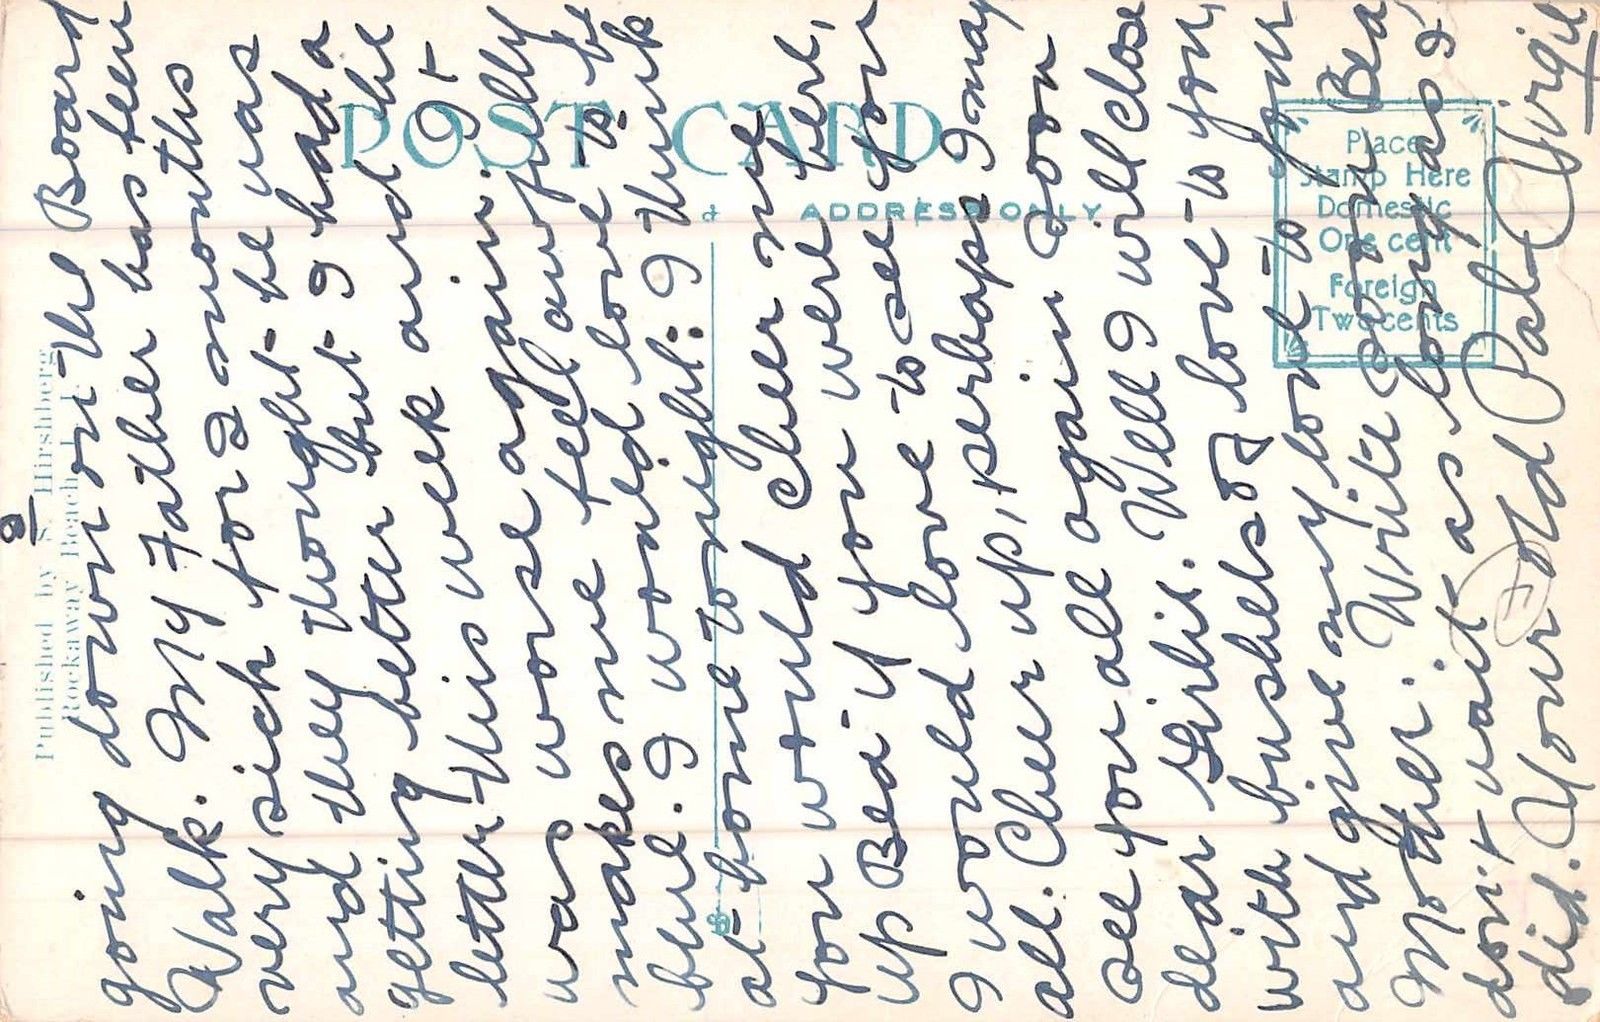 2
going down on the Board
Walk. My Father has been
very sick for 2 months
and they thought he was
getting better but I had a
letter this week and he
was worse again. It
makes me feel awfully
blue. I would love to be
at home to-night: I think
you would cheer me
up Bea if you were here,
I would love to see you
all. Cheer up, perhaps I may
see you all again soon
dear Girlie. Well I will close
with bushels of love to you,
and give my love to your
Mother. Write soon Bea
don't wait as long as I
did. Your old Pal Virgil
Published by S. Hirshberg
Rockaway Beach
POST CARD
ADDRESS ONLY
Place
Stamp Here
Domestic
One cent
Foreign
Two cents